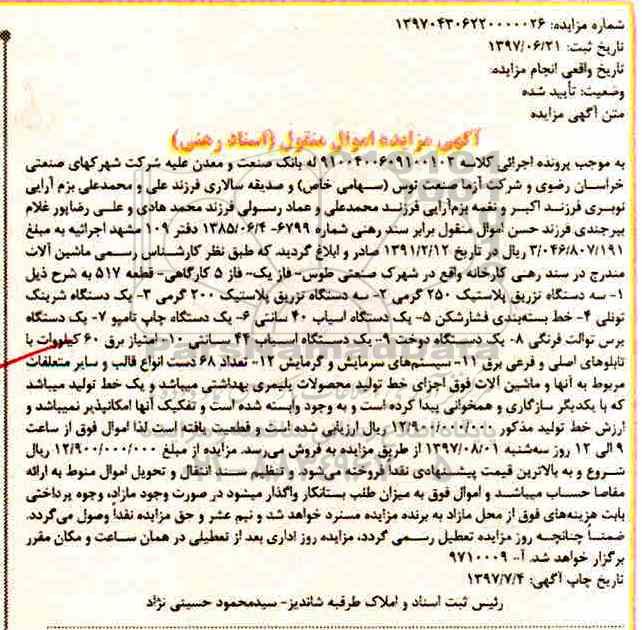 شماره مزایده: ۱۳۹۷۰۴۳۰۶۲۲۰۰۰۰۰۲۶
تاریخ ثبت: ۱۳۹۷/۰۶/۲۱
تاریخ واقعی انجام مزایده:
وضعیت: تأیید شده
متن آگهی مزایده
آگهی مزایده اموال منقول (اسناد رهنی)
به موجب پرونده اجرائی کلاسه ۹۱۰۰۴۰۰۶۰۹۱۰۰۱۰۲ له بانک صنعت و معدن علیه شرکت شهرکهای صنعتی
خراسان رضوی و شرکت آزما صنعت توس (سهامی خاص) و صدیقه سالاری فرزند علی و محمدعلی بزم آرایی
نوبری فرزند اکبر و نغمه بزم‌آرایی فرزند محمدعلی و عماد رسولی فرزند محمد هادی و علی رضاپور غلام
بیرجندی فرزند حسن اموال منقول برابر سند رهنی شماره ۶۷۹۹- ۱۳۸۵/۰۶/۴ دفتر ۱۰۹ مشهد اجرائیه به مبلغ
۳/۰۴۶/۸۰۷/۱۹۱ ریال در تاریخ ۱۳۹۱/۲/۱۲ صادر و ابلاغ گردید، که طبق نظر کارشناس رسمی ماشین آلات
مندرج در سند رهنی کارخانه واقع در شهرک صنعتی طوس- فاز یک- فاز ۵ کارگاهی- قطعه ۵۱۷ به شرح ذیل
۱- سه دستگاه تزریق پلاستیک ۲۵۰ گرمی ۲- سه دستگاه تزریق پلاستیک ۲۰۰ گرمی ۳- یک دستگاه شرینک
تونلی ۴- خط بسته‌بندی فشارشکن ۵- یک دستگاه آسیاب ۴۰ سانتی ۶- یک دستگاه چاپ تامپو ۷- یک دستگاه
برس توالت فرنگی ۸- یک دستگاه دوخت ۹- یک دستگاه آسیاب ۴۴ سانتی ۱۰- امتیاز برق ۶۰ کیلووات با
تابلوهای اصلی و فرعی برق ۱۱- سیستم‌های سرمایش و گرمایش ۱۲- تعداد ۶۸ دست انواع قالب و سایر متعلقات
مربوط به آنها و ماشین آلات فوق اجزای خط تولید محصولات پلیمری بهداشتی میباشد و یک خط تولید میباشد
که با یکدیگر سازگاری و همخوانی پیدا کرده است و به وجود وابسته شده است و تفکیک آنها امکانپذیر نمیباشد و
ارزش خط تولید مذکور ۱۲/۹۰۰/۰۰۰/۰۰۰ ریال ارزیابی شده است و قطعیت یافته است لذا اموال فوق از ساعت
۹ الی ۱۲ روز سه‌شنبه ۱۳۹۷/۰۸/۰۱ از طریق مزایده به فروش می‌رسد. مزایده از مبلغ ۱۲/۹۰۰/۰۰۰/۰۰۰ ریال
شروع و به بالاترین قیمت پیشنهادی نقداً فروخته می‌شود و تنظیم سند انتقال و تحویل اموال منوط به ارائه
مفاصا حساب میباشد و اموال فوق به میزان طلب بستانکار واگذار میشود در صورت وجود مازاد، وجوه پرداختی
بابت هزینه‌های فوق از محل مازاد به برنده مزایده مسترد خواهد شد و نیم عشر و حق مزایده نقداً وصول می‌گردد.
ضمناً چنانچه روز مزایده تعطیل رسمی گردد، مزایده روز اداری بعد از تعطیلی در همان ساعت و مکان مقرر
برگزار خواهد شد. آ- ۹۷۱۰۰۰۹
تاریخ چاپ آگهی: ۱۳۹۷/۷/۴
رئیس ثبت اسناد و املاک طرقبه شاندیز- سیدمحمود حسینی نژاد